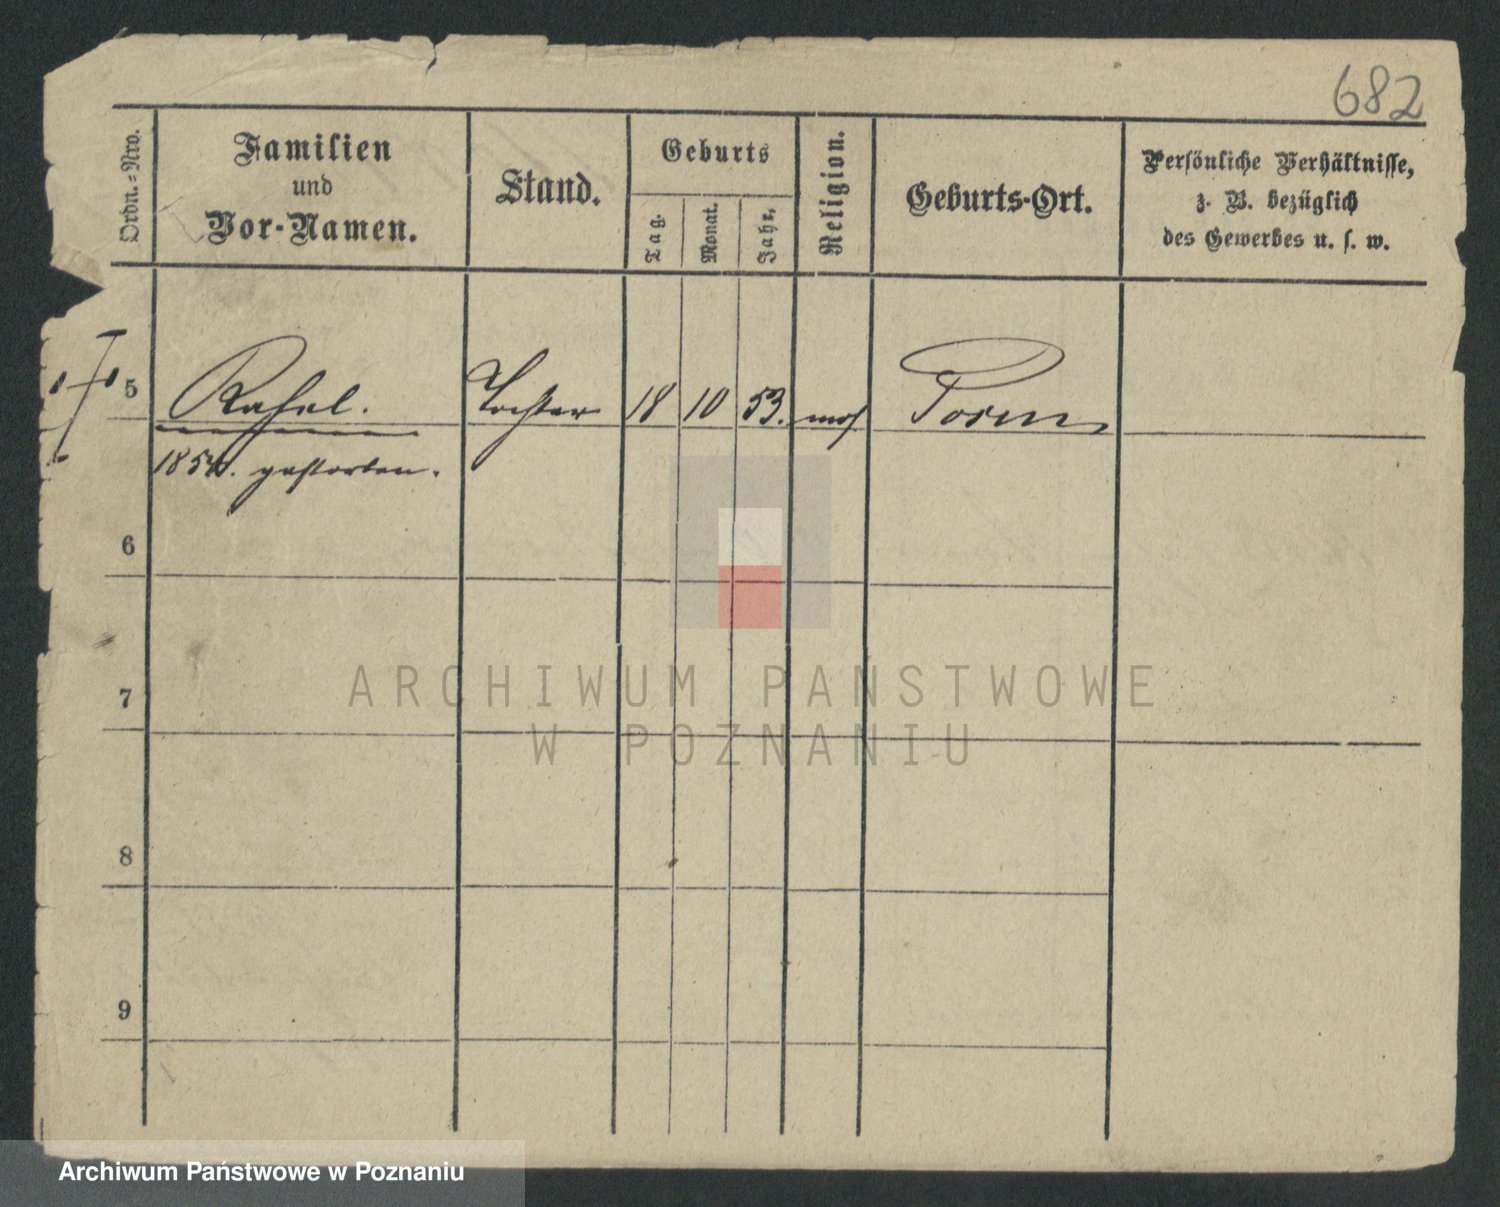 682
Ordn.=Nro.
Familien
und
Vor-Namen.
Stand.
Geburts
Tag.
Monat.
Jahr.
Religion.
Geburts-Ort.
Persönliche Verhältnisse,
z. B. bezüglich
des Gewerbes u. s. w.
5 Rahel. Tochter 18 10 53. mos Posen
gestorben.
6
7
8
9
ARCHIWUM PAŃSTWOWE
W POZNANIU
Archiwum Państwowe w Poznaniu